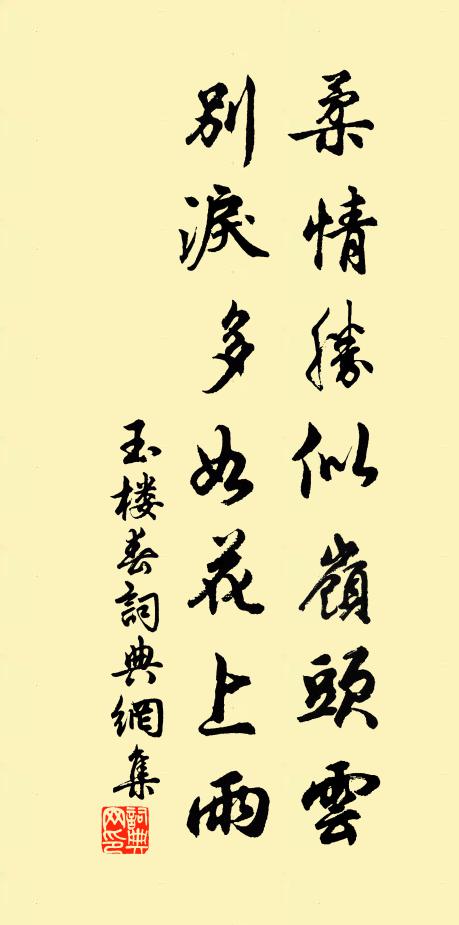 柔情勝似嶺頭雲
別淚多如花上雨
玉楼春詞典網集
詞典網印